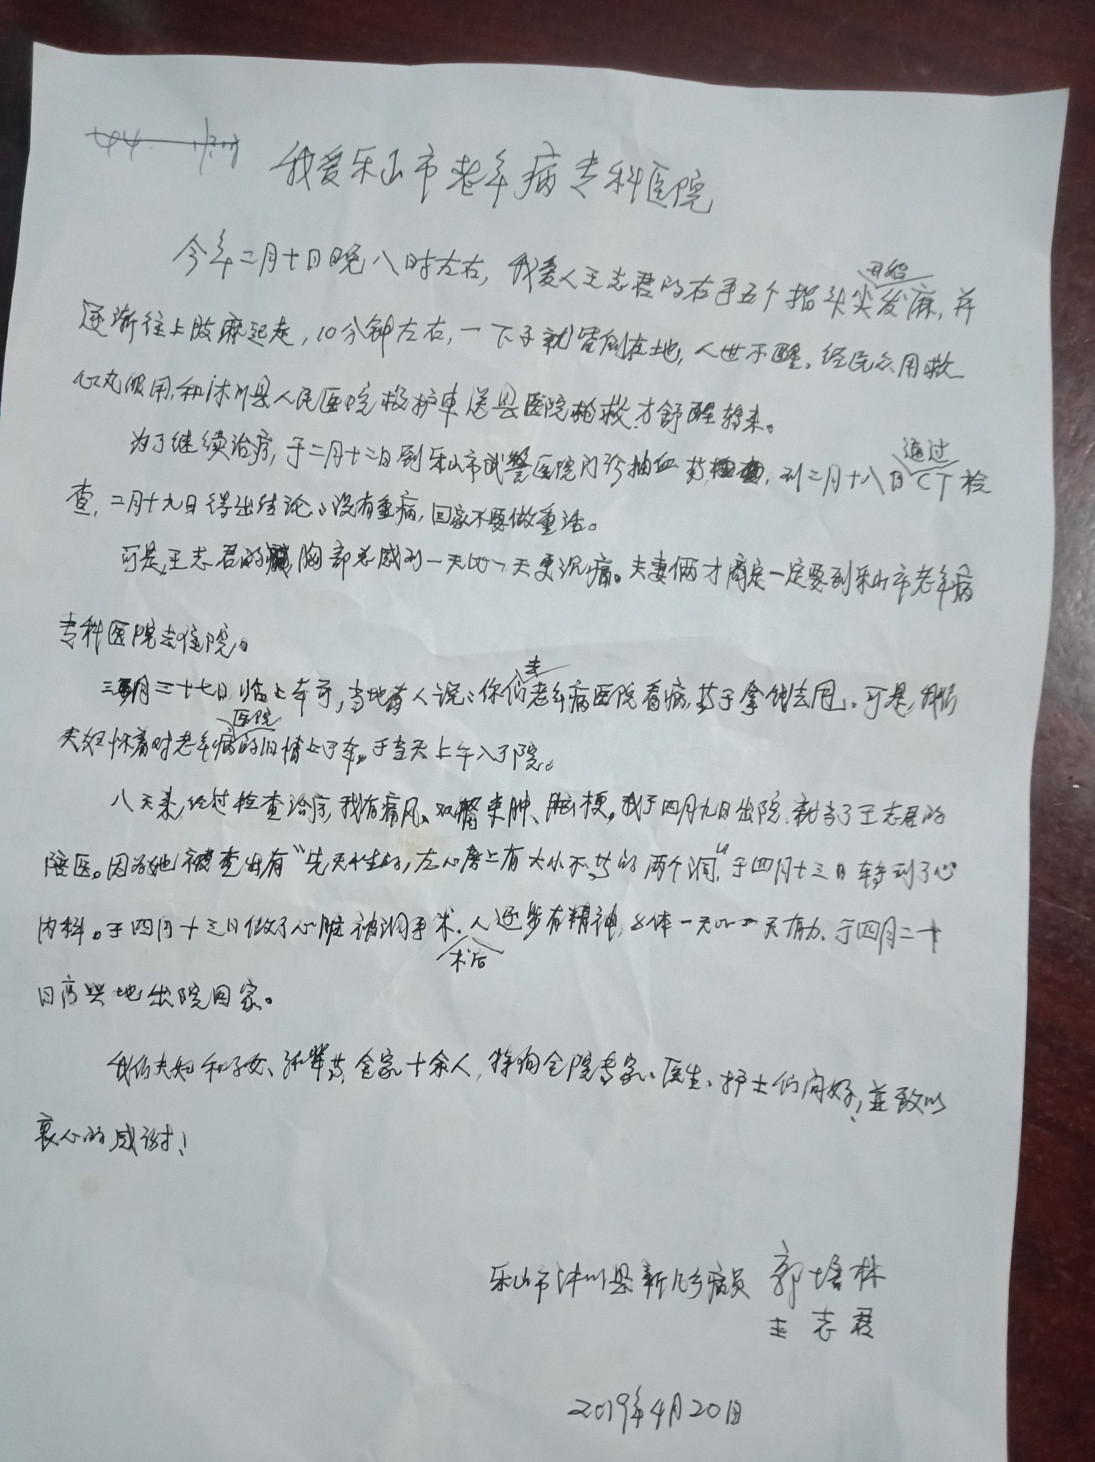 我爱乐山市老年病专科医院
今年二月十日晚八时左右，我爱人王志君的右手五个指头尖开始发麻，并
逐渐往上肢麻起走，10分钟左右，一下子就昏倒在地，人世不醒。经民众用救
心丸服用，和沐川县人民医院救护车送县医院抢救，才舒醒转来。
为了继续治疗，于二月十二日到乐山市武警医院门诊抽血，到二月十八日通过CT检
查，二月十九日得出结论：没有重病，回家不要做重活。
可是，王志君的胸部总感到一天比一天更沉痛。夫妻俩才商定一定要到乐山市老年病
专科医院去住院。
三月三十七日临上车前，当地有人说：你们去老年病医院看病，等于拿钱去甩。可是，我们
夫妇怀着对老年病医院的旧情上了车。于当天上午入了院。
八天来，经过检查治疗，我有痛风、双 夹肿、脑梗。我于四月九日出院，就当了王志君的
陪医。因为她被查出有“先天性的，左心房上有大小不等的两个洞”，于四月十三日转到了心
内科。于四月十三日做了心脏 手术。术后人逐步有精神，身体一天比一天有力，于四月二十
日高兴地出院回家。
我们夫妇和子女、孙辈等全家十余人，特向全院专家、医生、护士们问好，并致以
衷心的感谢！
乐山市沐川县新凡乡病员 郭培林
王志君
2019年4月20日